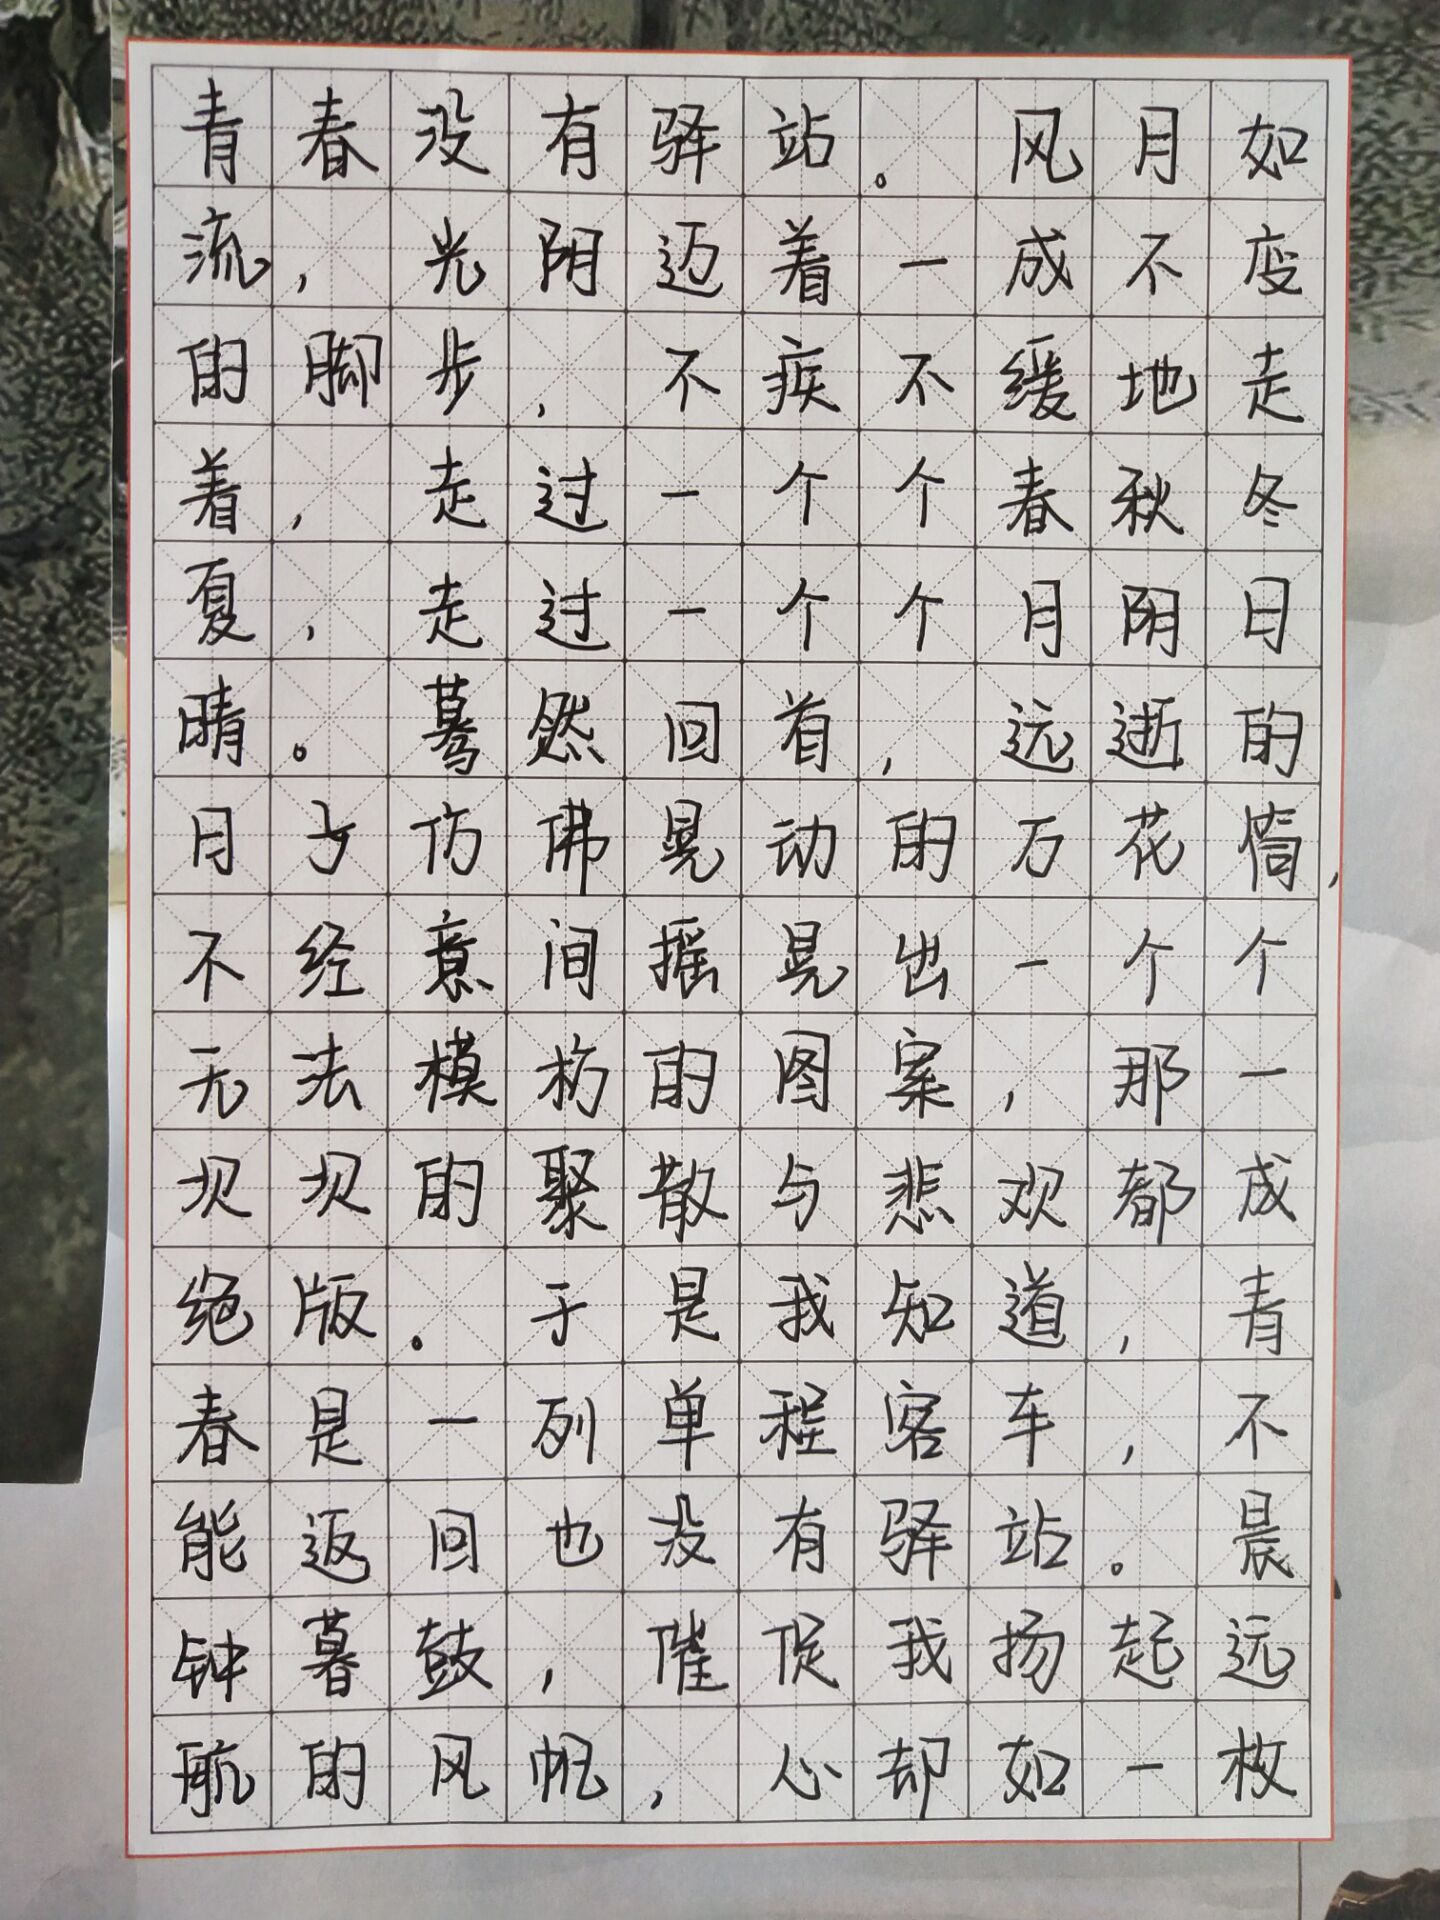 青春没有驿站。风月如
流，光阴迈着一成不变
的脚步，不疾不缓地走
着，走过一个个春秋冬
夏，走过一个个月阴日
晴。蓦然回首，远逝的
日子仿佛晃动的万花筒，
不经意间摇晃出一个个
无法模仿的图案，那一
坝坝的聚散与悲欢都成
绝版。于是我知道，青
春是一列单程客车，不
能返回也没有驿站。晨
钟暮鼓，催促我扬起远
航的风帆，心却如一枚